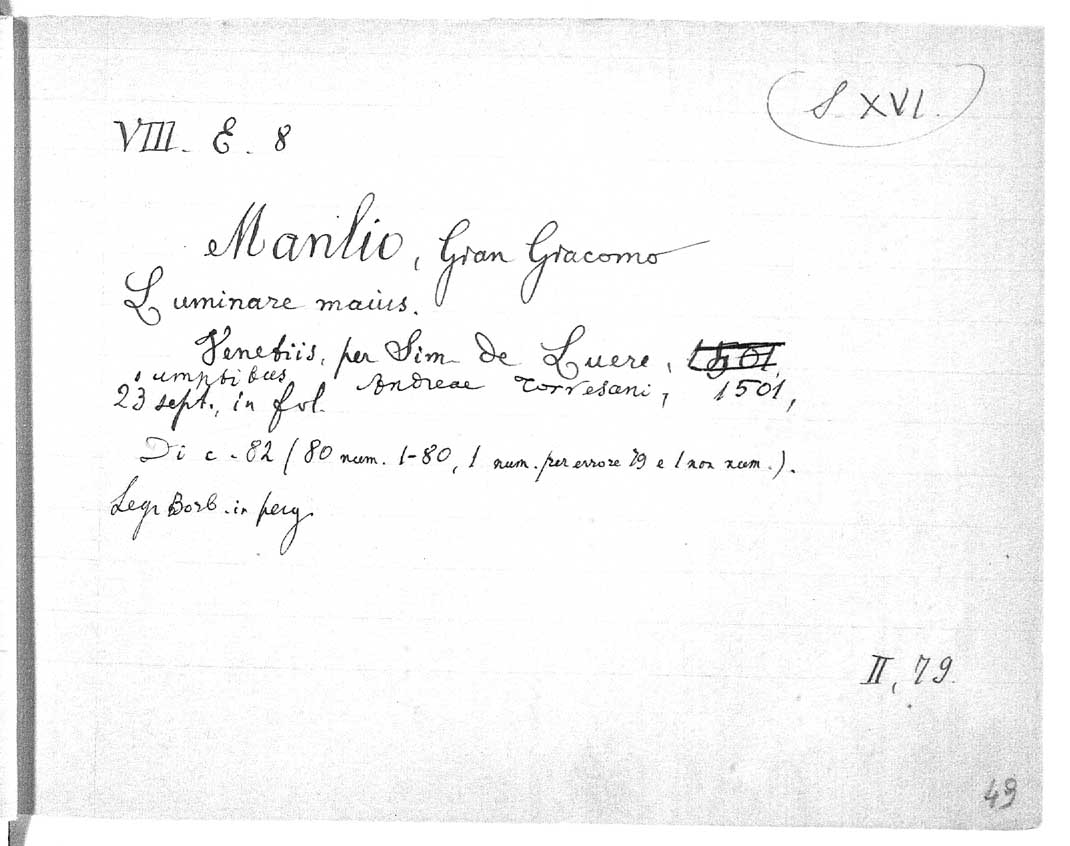 S. XVI.
VIII. E. 8
Manlio, Gian Giacomo
Luminare maius.
Venetiis, per Sim. de Luere, 1501,
sumptibus Andreae Torresani, 1501,
23 sept., in fol.
Di c. 82 (80 num. 1-80, 1 num. per errore 79 e 1 non num.).
Leg. Borb. in perg.
II, 79.
49